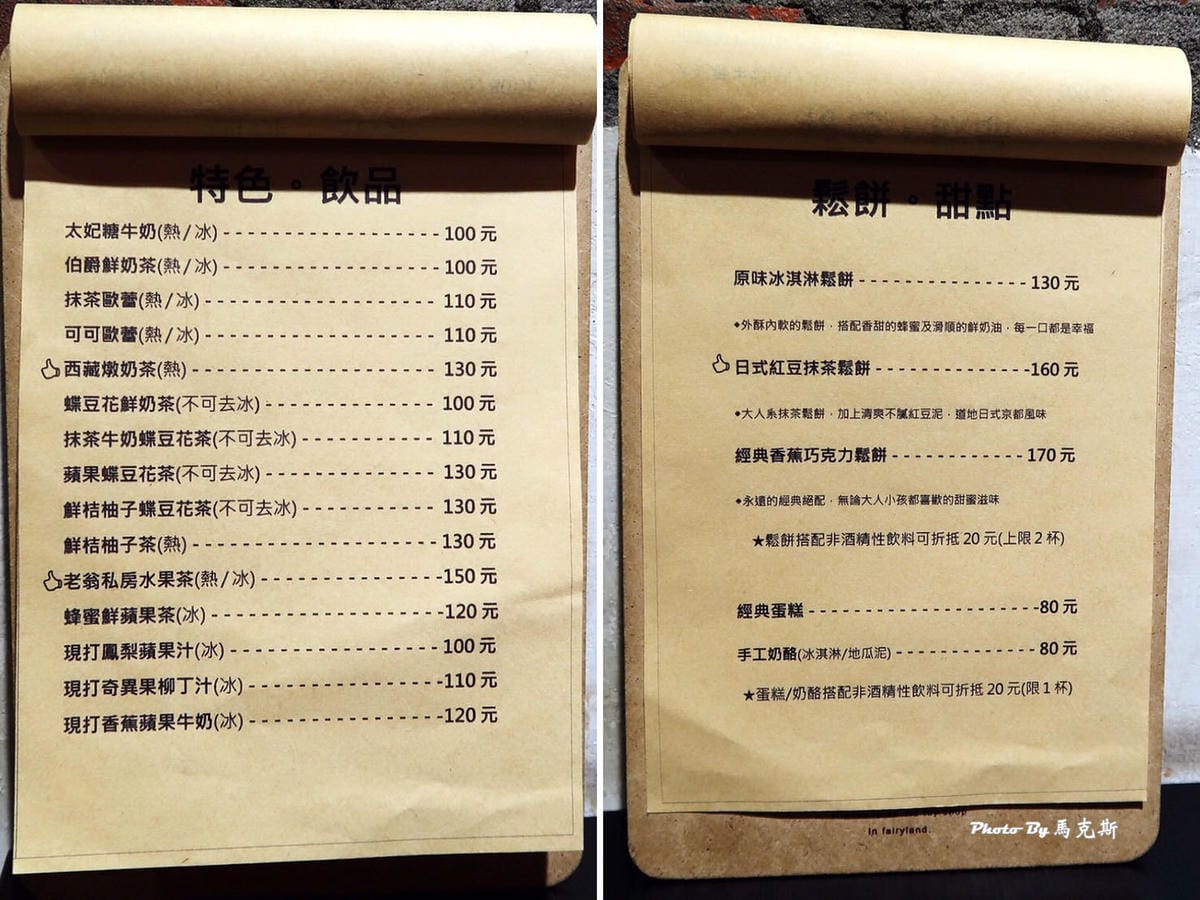 特色。飲品
太妃糖牛奶(熱/冰)-----------------------100元
伯爵鮮奶茶(熱/冰)-----------------------100元
抹茶歐蕾(熱/冰)-------------------------110元
可可歐蕾(熱/冰)-------------------------110元
西藏燉奶茶(熱)--------------------------130元
蝶豆花鮮奶茶(不可去冰)------------------100元
抹茶牛奶蝶豆花茶(不可去冰)--------------110元
蘋果蝶豆花茶(不可去冰)------------------130元
鮮桔柚子蝶豆花茶(不可去冰)--------------130元
鮮桔柚子茶(熱)--------------------------130元
老翁私房水果茶(熱/冰)-------------------150元
蜂蜜鮮蘋果茶(冰)------------------------120元
現打鳳梨蘋果汁(冰)----------------------100元
現打奇異果柳丁汁(冰)--------------------110元
現打香蕉蘋果牛奶(冰)--------------------120元
鬆餅。甜點
原味冰淇淋鬆餅-----------------130元
◆外酥內軟的鬆餅，搭配香甜的蜂蜜及滑順的鮮奶油，每一口都是幸福
日式紅豆抹茶鬆餅---------------160元
◆大人系抹茶鬆餅，加上清爽不膩紅豆泥，道地日式京都風味
經典香蕉巧克力鬆餅------------170元
◆永遠的經典絕配，無論大人小孩都喜歡的甜蜜滋味
★鬆餅搭配非酒精性飲料可折抵20元(上限2杯)
經典蛋糕-----------------------80元
手工奶酪(冰淇淋/地瓜泥)-------------80元
★蛋糕/奶酪搭配非酒精性飲料可折抵20元(限1杯)
in fairyland.
Photo By 馬克斯